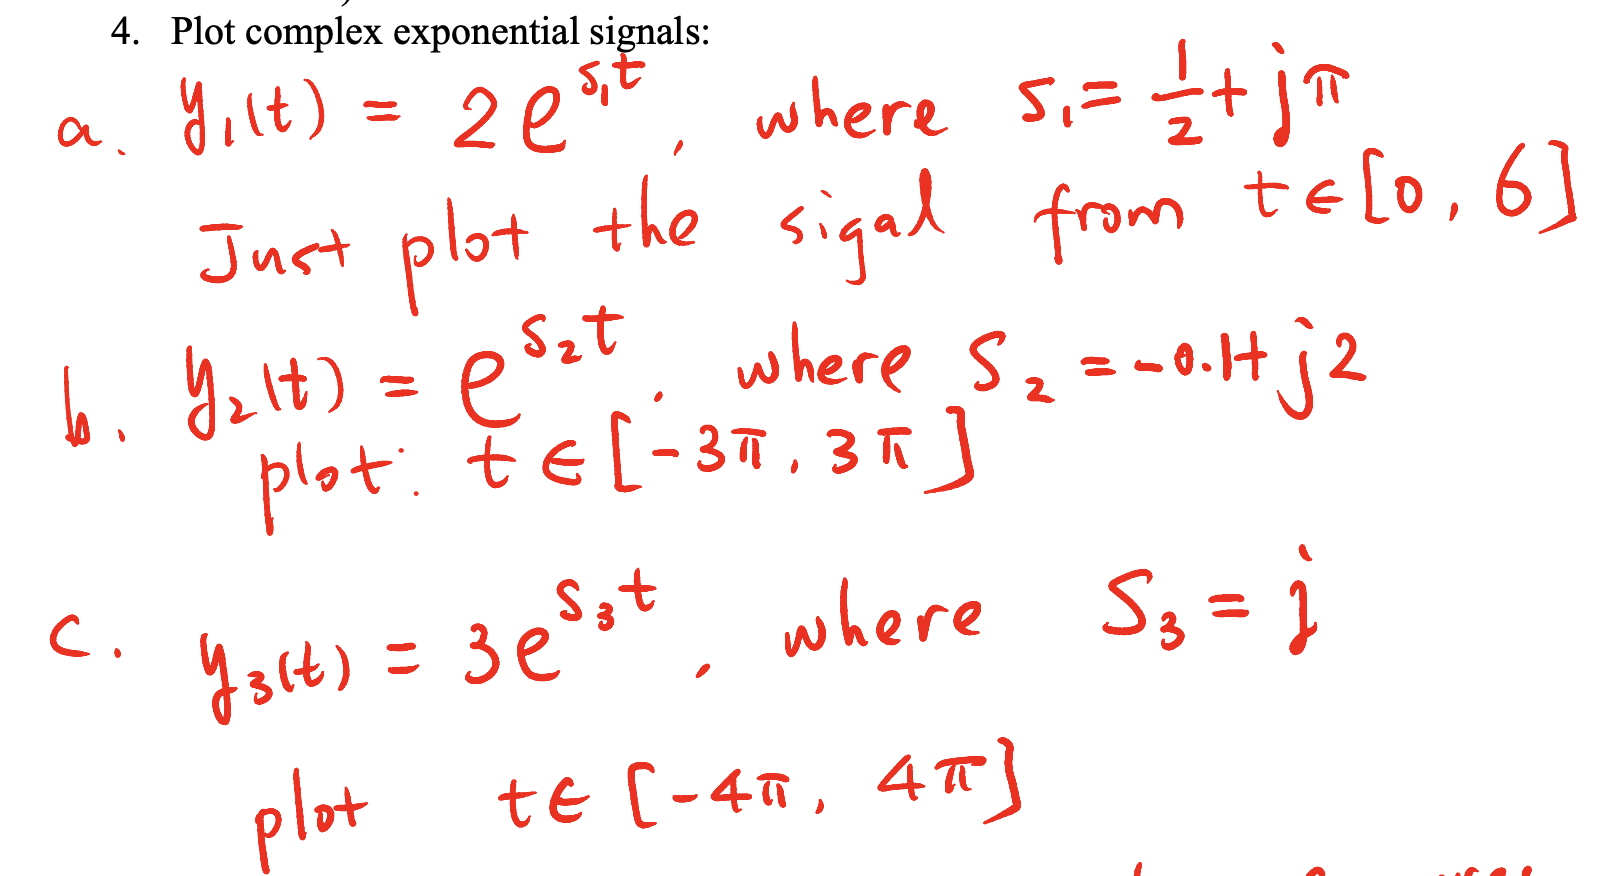 4. Plot complex exponential signals:
a. y₁(t) = 2e^{s₁t}, where s₁ = 1/2 + jπ
Just plot the sigal from t∈[0, 6]
b. y₂(t) = e^{s₂t}. where s₂ = -0.1+j2
plot: t∈[-3π, 3π]
c. y₃(t) = 3e^{s₃t}, where s₃ = j
plot t∈[-4π, 4π]